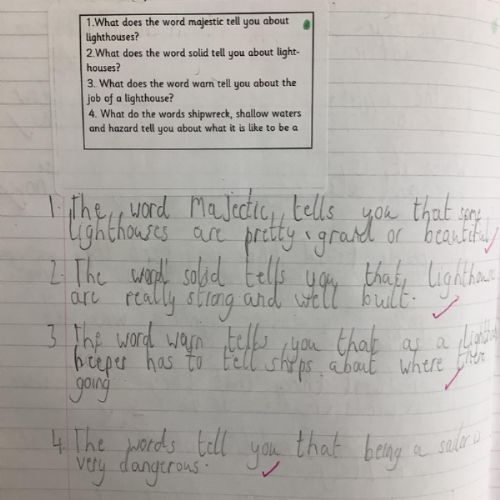 1.What does the word majestic tell you about
lighthouses?
2.What does the word solid tell you about light-
houses?
3. What does the word warn tell you about the
job of a lighthouse?
4. What do the words shipwreck, shallow waters
and hazard tell you about what it is like to be a
1. The word Majectic, tells you that some
lighthouses are pretty, grand or beautiful
2. The word solid tells you that, lighthouse
are really strong and well built.
3 The word warn tells you that as a
keeper has to tell ships about where
going
4. The words tell you that being a sailor is
very dangerous.